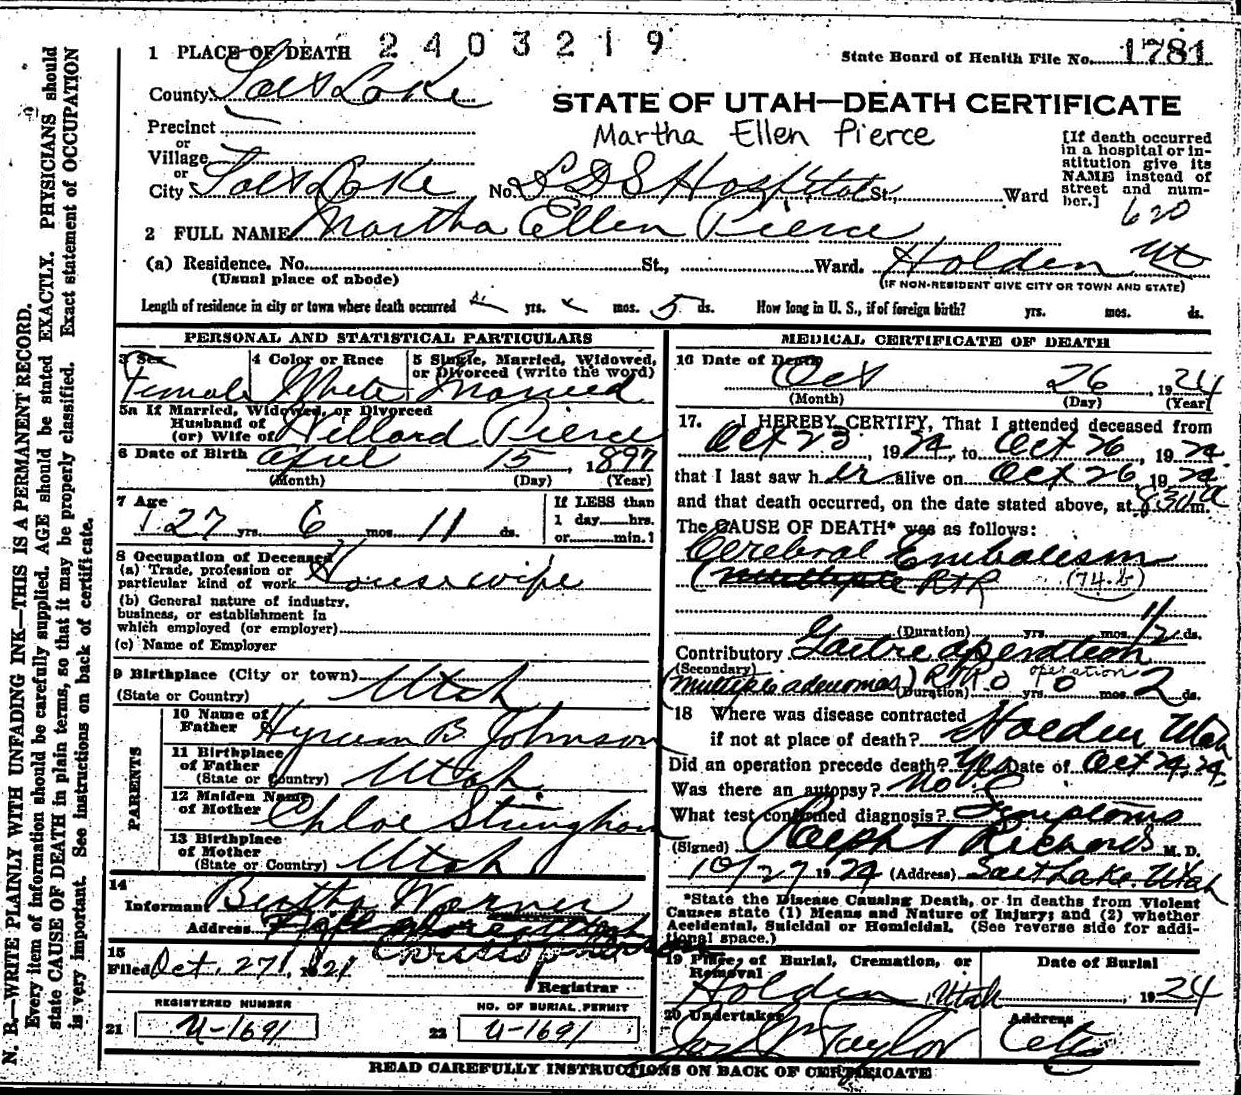 1 PLACE OF DEATH 2403219
State Board of Health File No. 1781
County Salt Lake
STATE OF UTAH—DEATH CERTIFICATE
Martha Ellen Pierce
Precinct
or
Village
or
City Salt Lake No. L D S Hospital St., Ward
[If death occurred
in a hospital or in-
stitution give its
NAME instead of
street and num-
ber.]
620
2 FULL NAME Martha Ellen Pierce
(a) Residence. No. St., Ward. Holden Ut
(Usual place of abode) (IF NON-RESIDENT GIVE CITY OR TOWN AND STATE)
Length of residence in city or town where death occurred yrs. mos. 5 ds. How long in U. S., if of foreign birth? yrs. mos. ds.
PERSONAL AND STATISTICAL PARTICULARS
3 Sex 4 Color or Race 5 Single, Married, Widowed,
or Divorced (write the word)
Female White Married
5a If Married, Widowed, or Divorced
Husband of
(or) Wife of Willard Pierce
6 Date of Birth April 15, 1897
(Month) (Day) (Year)
7 Age If LESS than
27 yrs. 6 mos. 11 ds. 1 day hrs.
or min.?
8 Occupation of Deceased
(a) Trade, profession or
particular kind of work Housewife
(b) General nature of industry,
business, or establishment in
which employed (or employer)
(c) Name of Employer
9 Birthplace (City or town)
(State or Country) Utah
PARENTS
10 Name of
Father Hyrum B. Johnson
11 Birthplace
of Father
(State or Country) Utah
12 Maiden Name
of Mother Chloe Stringham
13 Birthplace
of Mother
(State or Country) Utah
14
Informant Bertha Warner
Address
15
Filed Oct. 27, 1924
Registrar
REGISTERED NUMBER NO. OF BURIAL PERMIT
21 U-1691 22 U-1691
MEDICAL CERTIFICATE OF DEATH
16 Date of Death
Oct 26 1924
(Month) (Day) (Year)
17. I HEREBY CERTIFY, That I attended deceased from
Oct 23, 1924, to Oct 26, 1924
that I last saw her alive on Oct 26, 1924
and that death occurred, on the date stated above, at 830 a m.
The CAUSE OF DEATH* was as follows:
Cerebral Embolism
(multiple RTR (74.b)
(Duration) yrs. mos. 1/2 ds.
Contributory Goitre operation
(Secondary) operation
(multiple adenomas) RTR (Duration) 0 yrs. 0 mos. 2 ds.
18 Where was disease contracted
if not at place of death? Holden Utah
Did an operation precede death? Yes Date of Oct 24, 24
Was there an autopsy? No.
What test confirmed diagnosis? Symptoms
(Signed) Ralph T Richards M. D.
10/27 1924 (Address) Salt Lake. Utah
*State the Disease Causing Death, or in deaths from Violent
Causes state (1) Means and Nature of Injury; and (2) whether
Accidental, Suicidal or Homicidal. (See reverse side for addi-
tional space.)
19 Place of Burial, Cremation, or Date of Burial
Removal
Holden, Utah, 1924
20 Undertaker Address
Taylor City
READ CAREFULLY INSTRUCTIONS ON BACK OF CERTIFICATE
N. B.—WRITE PLAINLY WITH UNFADING INK—THIS IS A PERMANENT RECORD.
Every item of information should be carefully supplied. AGE should be stated EXACTLY. PHYSICIANS should
state CAUSE OF DEATH in plain terms, so that it may be properly classified. Exact statement of OCCUPATION
is very important. See instructions on back of certificate.